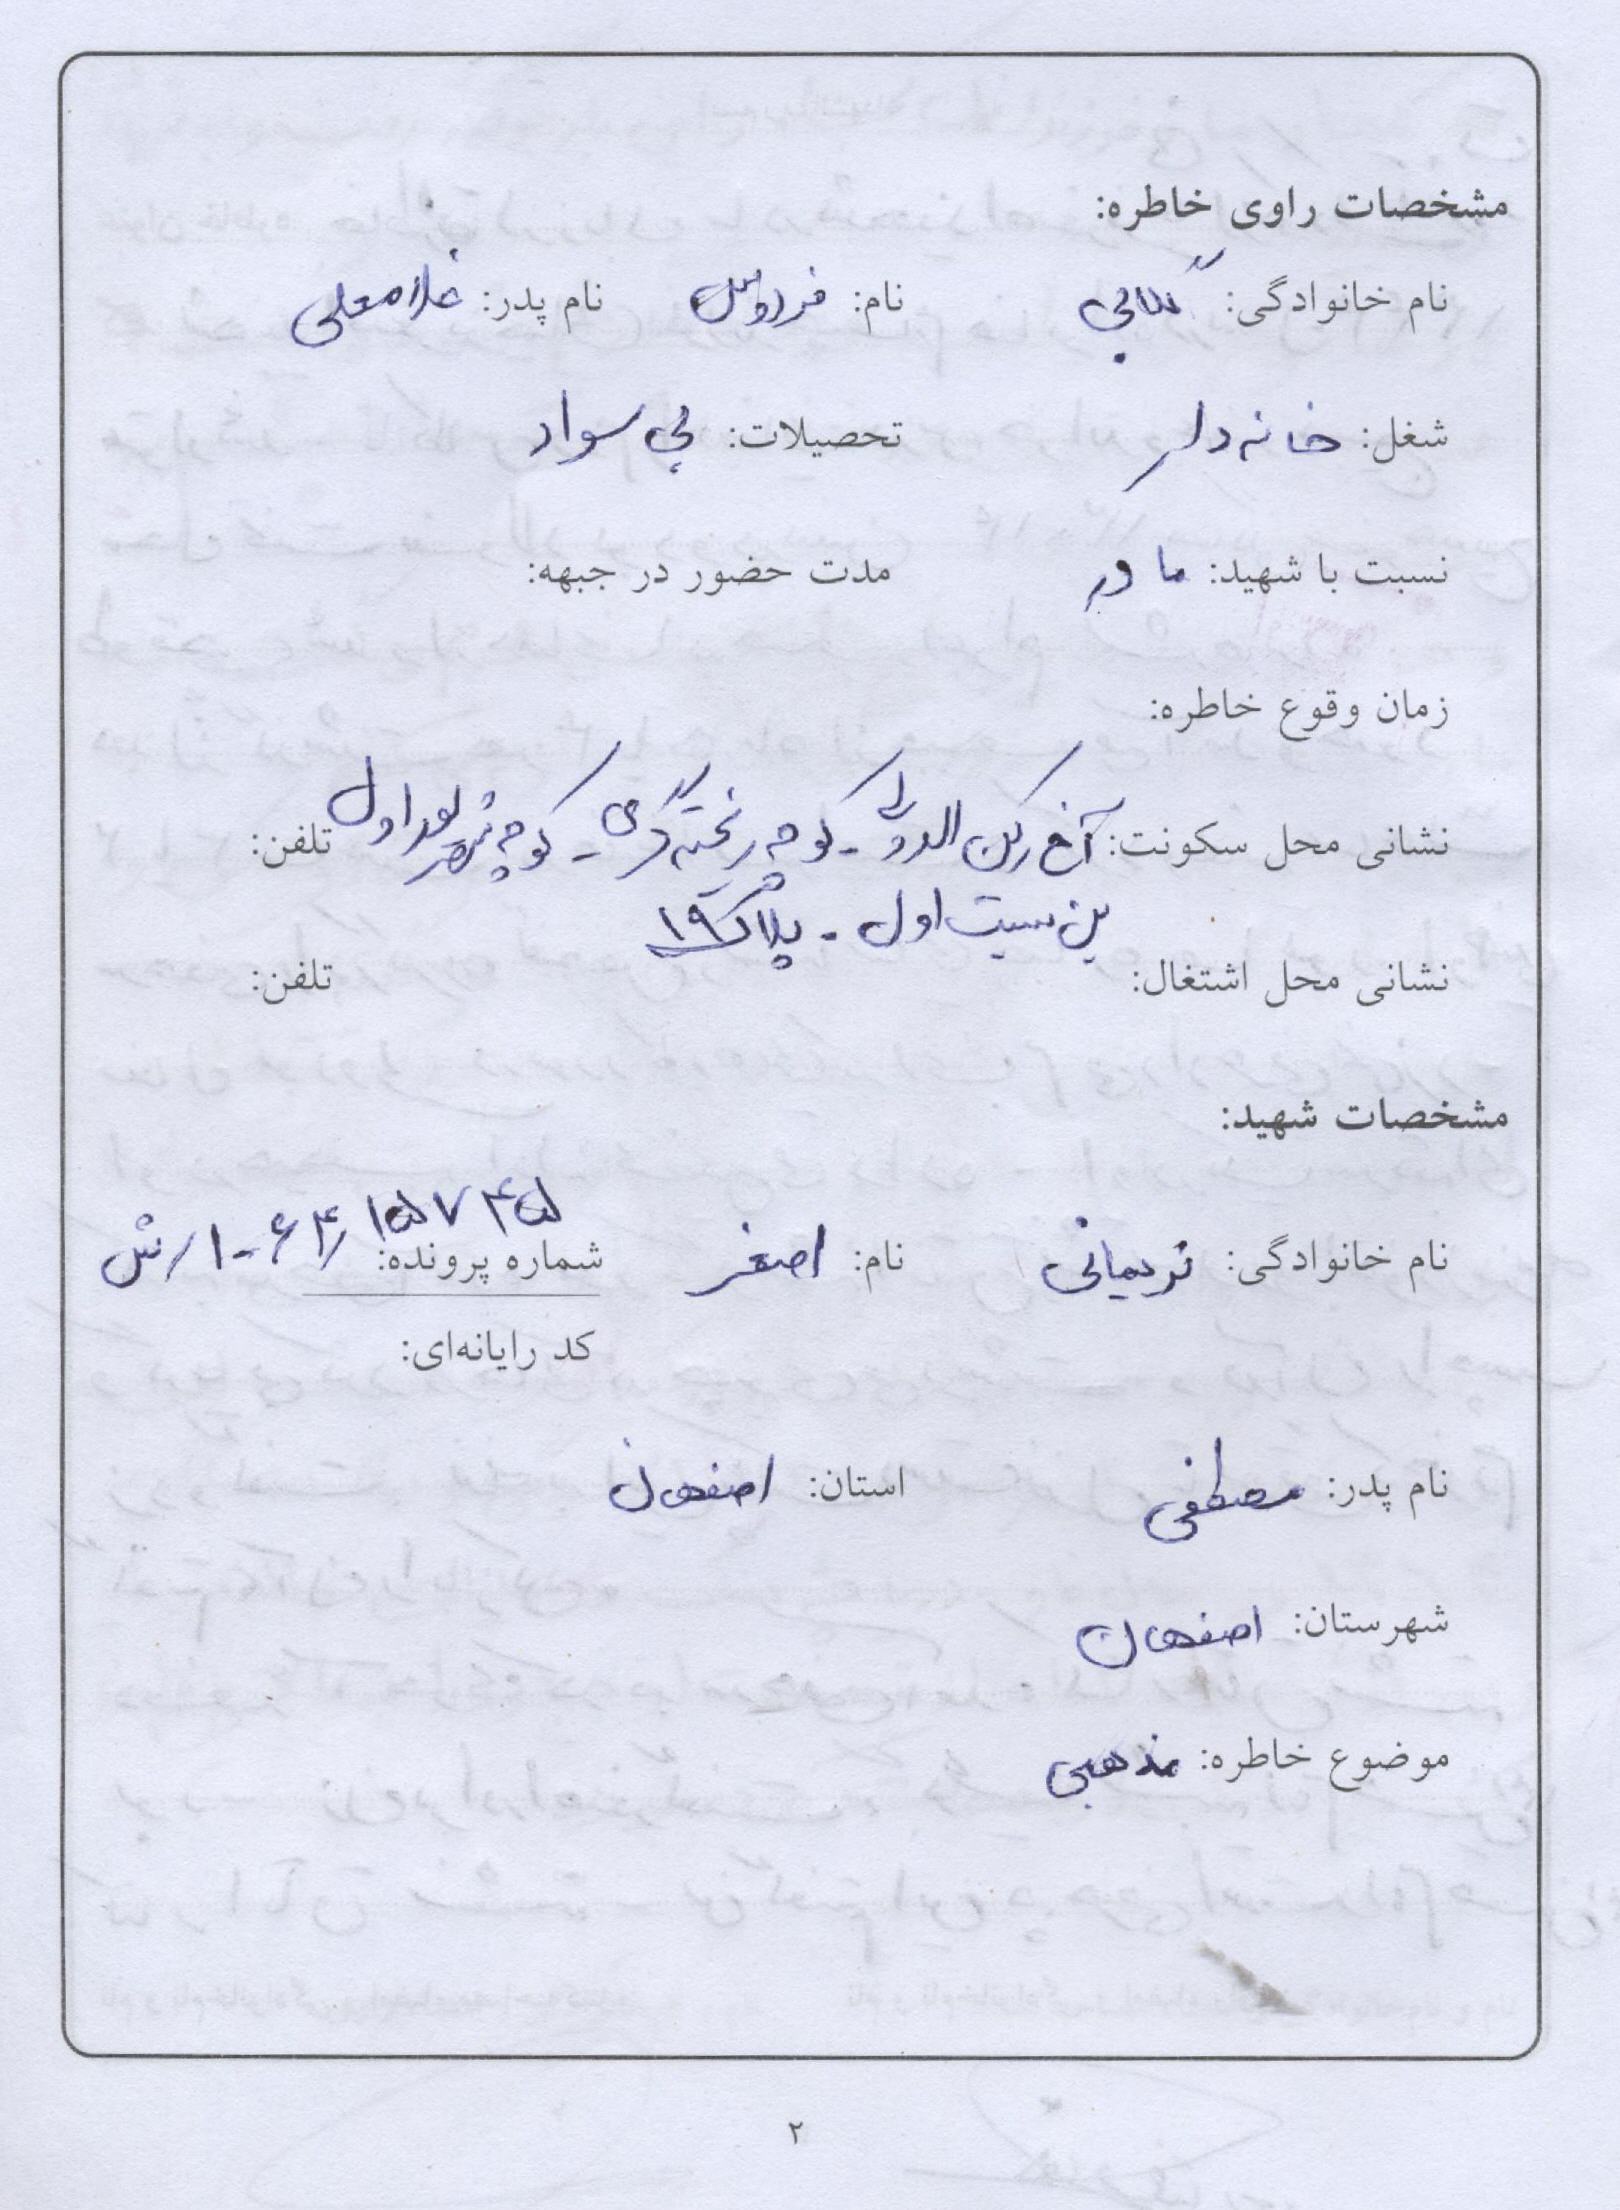 مشخصات راوی خاطره:
نام خانوادگی: گلابی نام: فردوس نام پدر: غلامعلی
شغل: خانه دار تحصیلات: بی سواد
نسبت با شهید: مادر مدت حضور در جبهه:
زمان وقوع خاطره:
نشانی محل سکونت: آخر رکن الدوله - کوچه ریخته گری - کوچه اول تلفن:
بن بست اول - پلاک ۱۹
نشانی محل اشتغال: تلفن:
مشخصات شهید:
نام خانوادگی: نریمانی نام: اصغر شماره پرونده: ۱۵۷۴۵
کد رایانه‌ای:
نام پدر: مصطفی استان: اصفهان
شهرستان: اصفهان
موضوع خاطره: مذهبی
۲